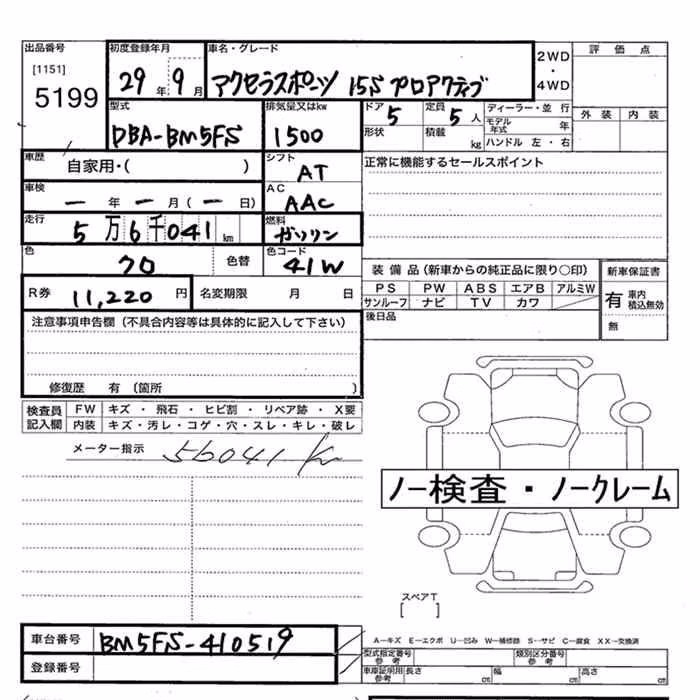 出品番号 [1151] 5199
初度登録年月 29年 9月
車名・グレード アクセラスポーツ 15S プロアクティブ
2WD ・ 4WD
評価点
外装 内装
型式 DBA-BM5FS
排気量又はkw 1500
ドア 5 定員 5人
形状 積載 kg
ディーラー・並行
モデル年式 年
ハンドル 左・右
車歴 自家用・( )
シフト AT
正常に機能するセールスポイント
車検 ー年ー月(ー日)
AC AAC
走行 5万6千041km
燃料 ガソリン
色 色替
色コード 41W
装備品(新車からの純正品に限り○印)
PS PW ABS エアB アルミW
サンルーフ ナビ TV カワ
新車保証書
有 車内積込無効
無
R券 11,220円
名変期限 月 日
後日品
注意事項申告欄(不具合内容等は具体的に記入して下さい)
修復歴 有〔箇所 〕
検査員記入欄
FW キズ・飛石・ヒビ割・リペア跡・X要
内装 キズ・汚レ・コゲ・穴・スレ・キレ・破レ
メーター指示 56041 km
ノー検査・ノークレーム
スペアT
[ ]
車台番号 BM5FS-410519
登録番号
A-キズ E-エクボ U-凹み W-補修跡 S-サビ C-腐食 XX-交換済
型式指定番号 参考
類別区分番号 参考
車庫証明用 参考 長さ cm 幅 cm 高さ cm